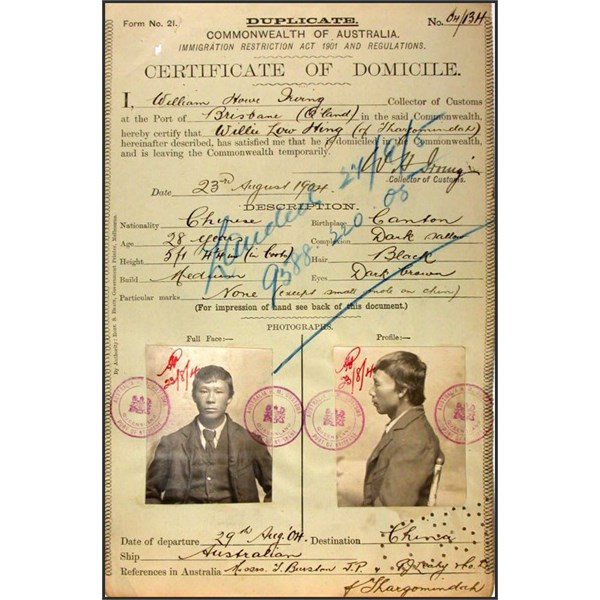 Form No. 21.
DUPLICATE.
No. 04/134
COMMONWEALTH OF AUSTRALIA.
IMMIGRATION RESTRICTION ACT 1901 AND REGULATIONS.
CERTIFICATE OF DOMICILE.
I, William Howe Irving Collector of Customs
at the Port of Brisbane (Q'land) in the said Commonwealth,
hereby certify that Willie Low Hing (of Thargomindah)
hereinafter described, has satisfied me that he is domiciled in the Commonwealth,
and is leaving the Commonwealth temporarily.
W H Irving
Collector of Customs.
Date 23rd August 1904.
Landed 27/9/5
9588 220 05
DESCRIPTION.
Nationality Chinese Birthplace Canton
Age 28 years Complexion Dark sallow
Height 5ft (in boots) Hair Black
Build Medium Eyes Dark brown
Particular marks None (except small mole on chin)
(For impression of hand see back of this document.)
PHOTOGRAPHS.
Full Face:— Profile:—
23/8/4
23/8/4
Date of departure 29th Aug '04 Destination China
Ship Australian
References in Australia Moses J. Buston J.P. &
of Thargomindah